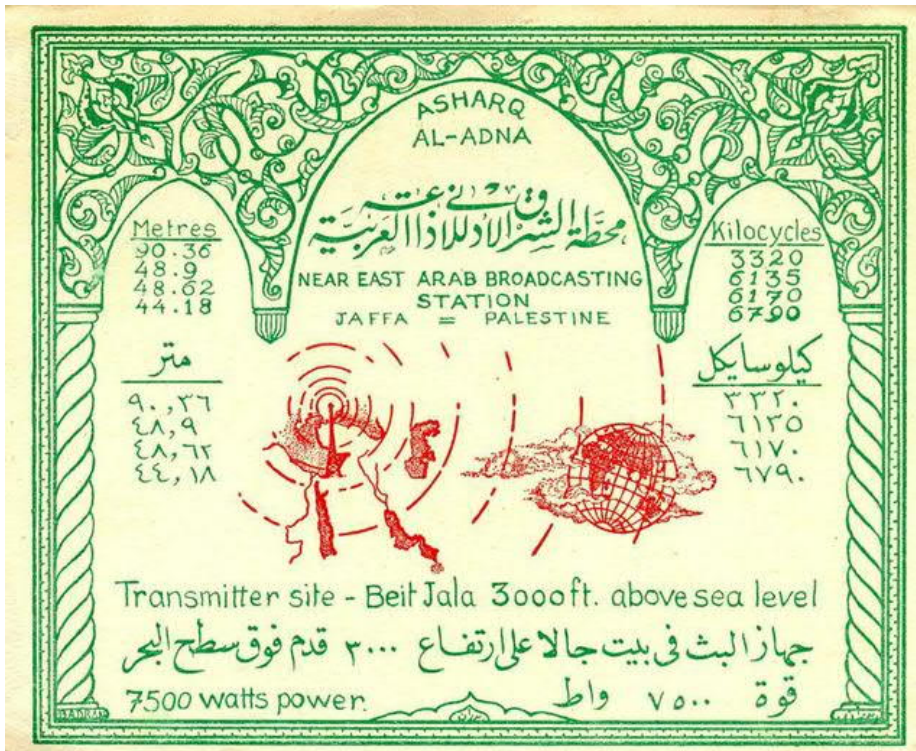 ASHARQ
AL-ADNA
محطة الشرق الأدنى للإذاعة العربية
NEAR EAST ARAB BROADCASTING
STATION
JAFFA = PALESTINE
Metres
90.36
48.9
48.62
44.18
Kilocycles
3320
6135
6170
6790
متر
٩٠,٣٦
٤٨,٩
٤٨,٦٢
٤٤,١٨
كيلوسايكل
٣٣٢٠
٦١٣٥
٦١٧٠
٦٧٩٠
Transmitter site - Beit Jala 3000ft. above sea level
جهاز البث في بيت جالا على ارتفاع ٣٠٠٠ قدم فوق سطح البحر
7500 watts power.
قوة ٧٥٠٠ واط
BADRAN